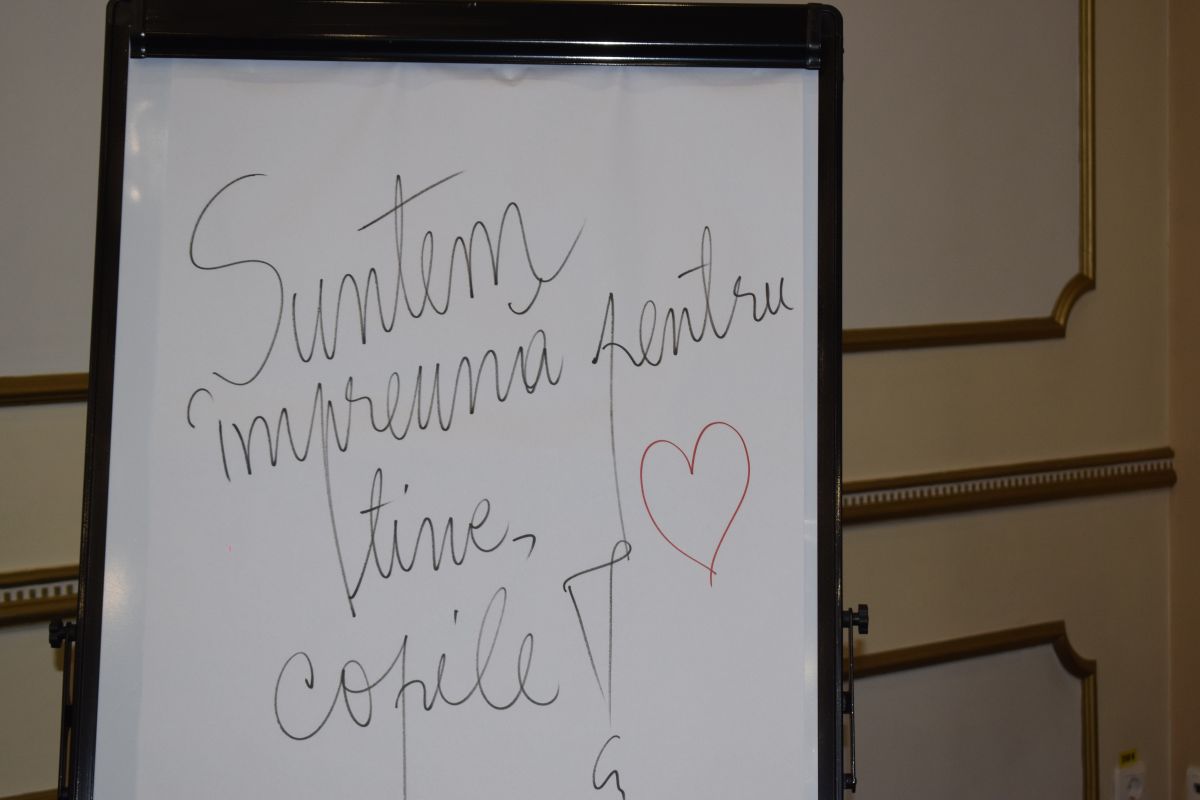 Suntem
împreuna pentru
tine,
copile!